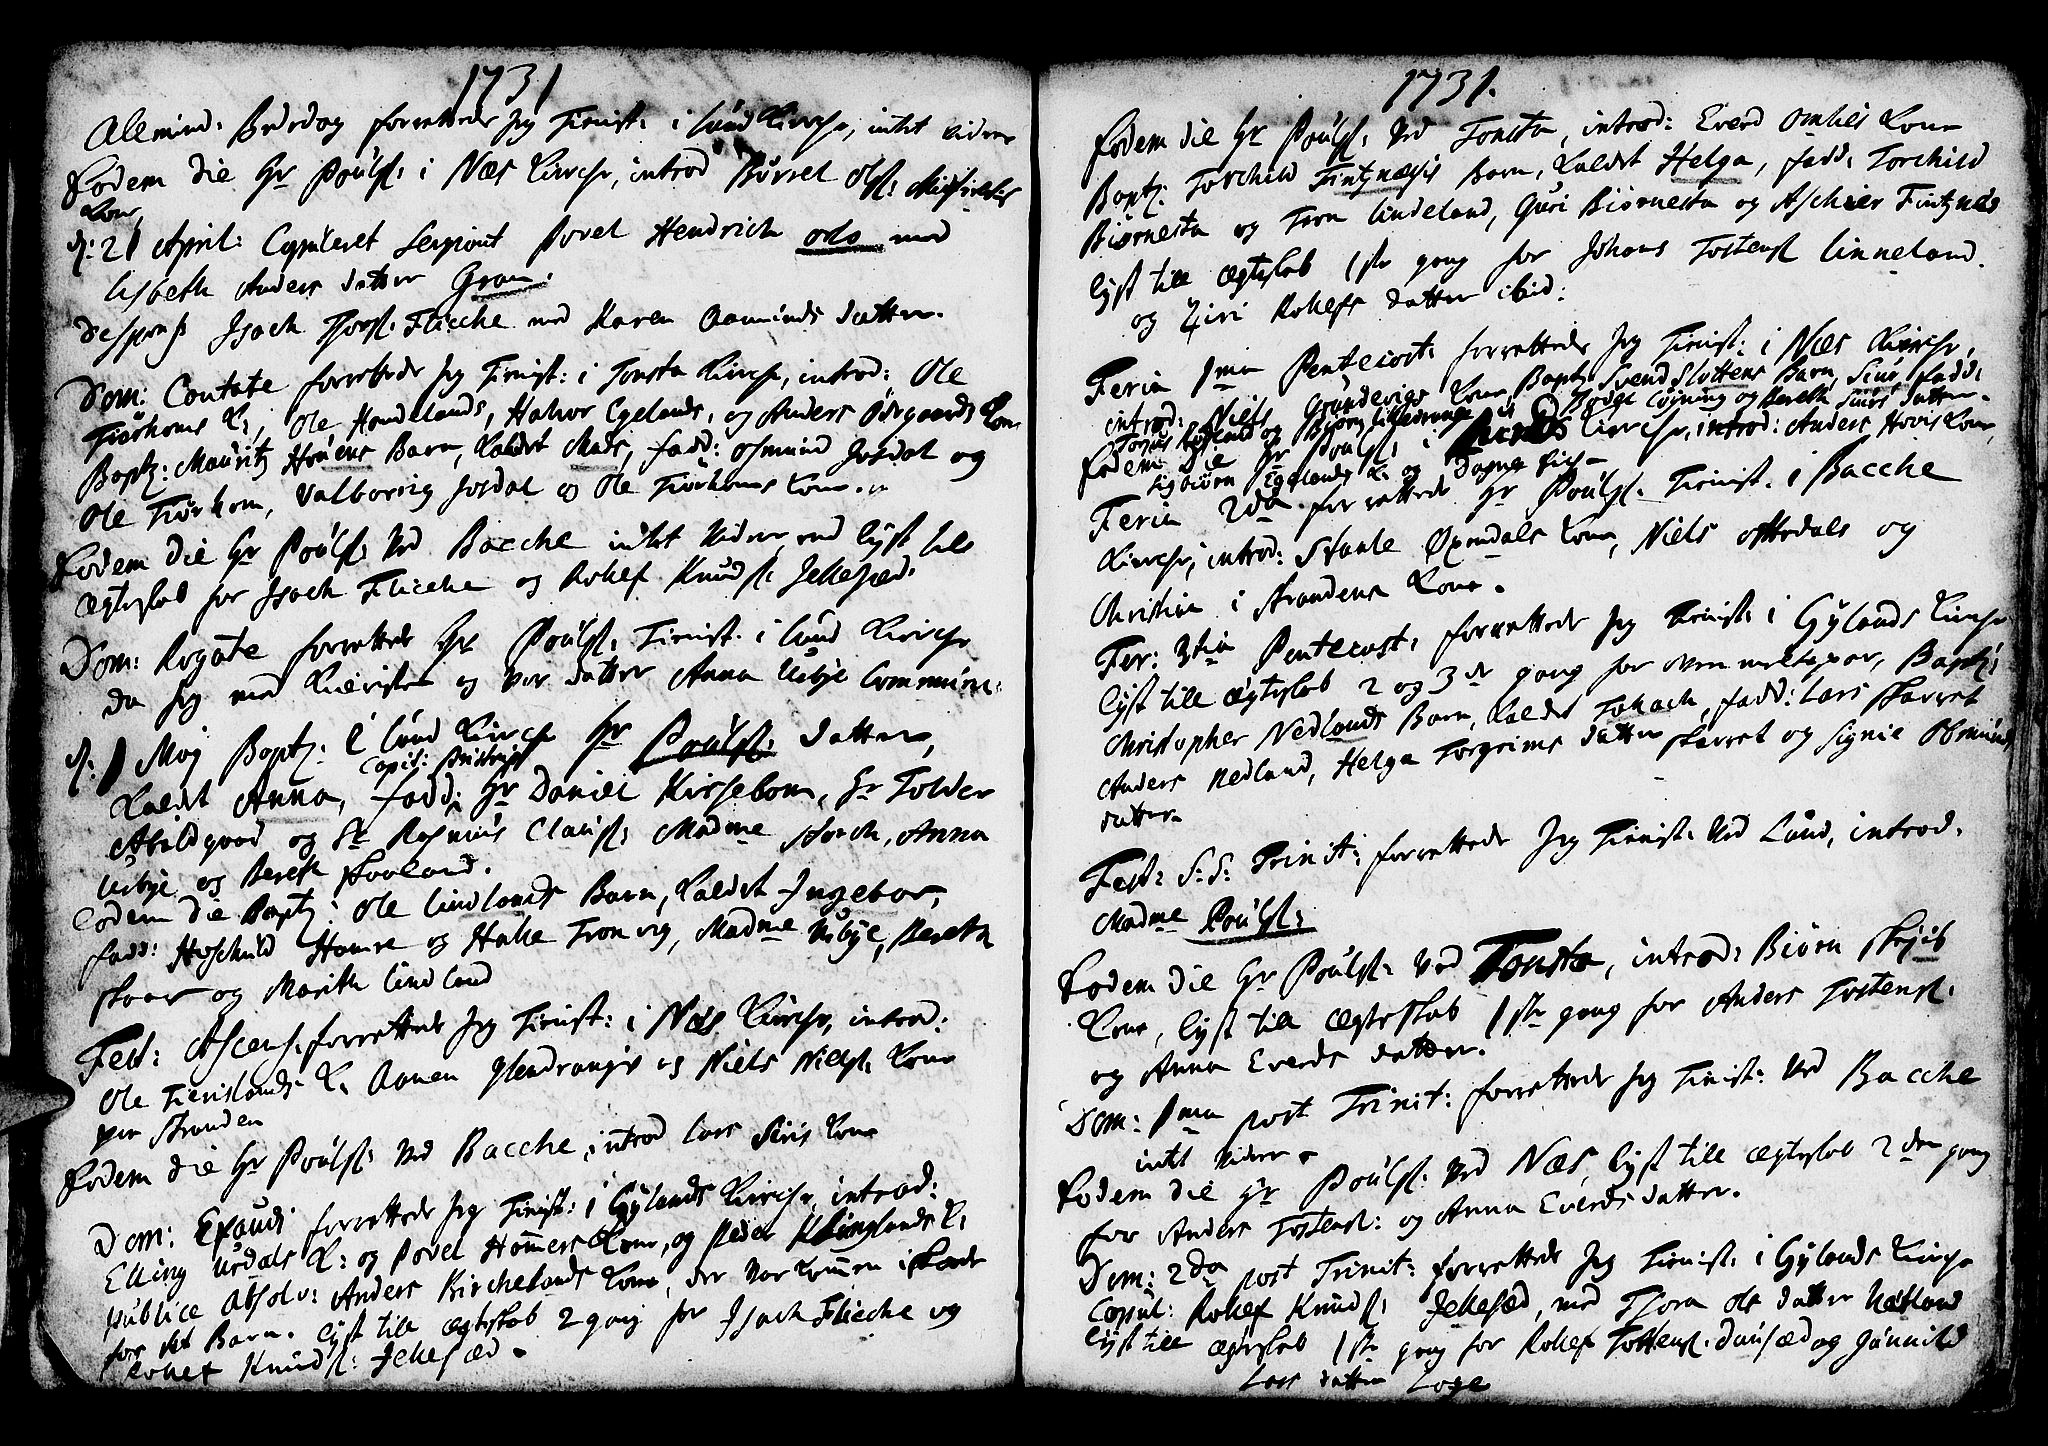 1731
Alemind: Bededag forrettede Jeg Tienist: i Lund Kirche, intet videre
Eodem die Hr Poulss: i Næs Kirche, introd Børrel Ols:
Kone,
d: 21 April: Copuleret Sergiant Povel Hendrich odo med
Lisbeth Anders datter Gran.
Despons: Isach Tors: Flicche med Karen Aamunds datter.
Dom: Cantate forrettede Jeg Tienist: i Tonsta Kirche, introd: Ole
Tiørhoms K:, Ole Handelands, Halvor Egelands, og Anders Ødegaards Kone
Baptz: Mauritz Houens Barn, Kaldet Mads, fadd: Osmund Josdal og
Ole Tiørhom, Valborrig Josdal og Ole Tiørhoms Kone.
Eodem die Hr Poulss: ved Bacche intet videre end lyst till
Ægteskab for Isach Flicche og Rolief Knuds: Jellesæd.
Dom: Rogate forrettede Hr Poulss: Tienist: i Lund Kirche
da Jeg med Kieriste og vor datter Anna Urbye Commun:
d: 1 Maj Baptz: i Lund Kirche Hr Poulss: datter,
Capit:
Kaldet Anna, fadd: Hr Daniel Kirsebom, Sr Tolder
Abildgaard og Sr Rasmus Clauss: Madme Storch, Anna
Urbye og Bereth Skaaland.
Eodem die Baptz: Ole Lindlands Barn, Kaldet Ingebor,
fadd: Hoskuld Hamre og Hake Tronvig, Madme Urbye, Bereth
Skaar og Marith Lindland
Fest: Ascens: forrettede Jeg Tienist: i Næs Kirche, introd:
Ole Fierislands K: Aanen Glendrangis og Niels Niels: Kone
paa Stranden
Eodem die Hr Poulss: ved Bacche, introd Lars Siris Kone
Dom: Exaudi forrettede Jeg Tienist: i Gylands Kirche, introd:
Elling Urdals K: og Povel Hommers Kone, og Peder KLinglands K:
publice absolv: Anders Birchelands Kone, der var kommen i skade
for sit Barn. lyst till Ægteskab 2 gang for Isach Flicche og
Rolief Knuds: Jellesæd.
1731.
Eodem die Hr Poulss: ved Tonsta, introd: Everd Omlies Kone
Baptz: Torchild Fintznæsis Barn, Kaldet Helga, fadd: Torchild
Biørnesta og Tron Lindeland, Guri Biørnesta og Aschier Fintznes
lyst till Ægteskab 1ste gang for Johans Tostens: Linneland.
og Ziri Roliefs datter ibid:
Feria 1ma Pentecost: forrettede Jeg Tienist: i Næs Kirche,
introd: Niels Grundevigs Kone, Baptz: Svend Slottens Barn, Siur, fadd:
Povel Osining og Bereth Siurs datter.
Eodem die Hr Poulss: i Lunds Kirche, introd: Anders Hovis Kone,
Sigbiørn Egelands K: og Dagne
Feria 2da forrettede Hr Poulss: Tienist: i Bacche
Kirche, introd: Staale Øxendals Kone, Niels ottedals og
Christian i Strandens Kone.
Fer: 3tia Pentecost: forrettede Jeg Tienist: i Gylands Kirche
lyst till Ægteskab 2 og 3de gang for oven meltepar, Baptz:
Christopher Nedlands Barn, Kaldet Tollach, fadd: Lars Skarret
Anders Nedland, Helga Torgrims datter Skarret og Signie Osmunds
datter.
Fest: S:S: Trinit: forrettede Jeg Tienist: ved Lund, introd.
Madme Poulss:
Eodem die Hr Poulss: ved Tonsta, introd: Biørn Skejis
Kone, lyst till Ægteskab 1ste gang for Anders Tostens:
og Anna Everds datter.
Dom: 1ma post Trinit: forrettede Jeg Tienist: ved Bacche
intet videre.
Eodem die Hr Poulss: ved Næs, lyst till Ægteskab 2den gang
for Anders Tostens: og Anna Everds datter.
Dom: 2da post Trinit: forrettede Jeg Tienist: i Gylands Kirche
Copul: Rolief Knuds: Jellesæd, med Thora Ols datter Nætland
lyst till Ægteskab 1ste gang for Rolief Tostens: dausæd og Gunnild
Lars datter Loge